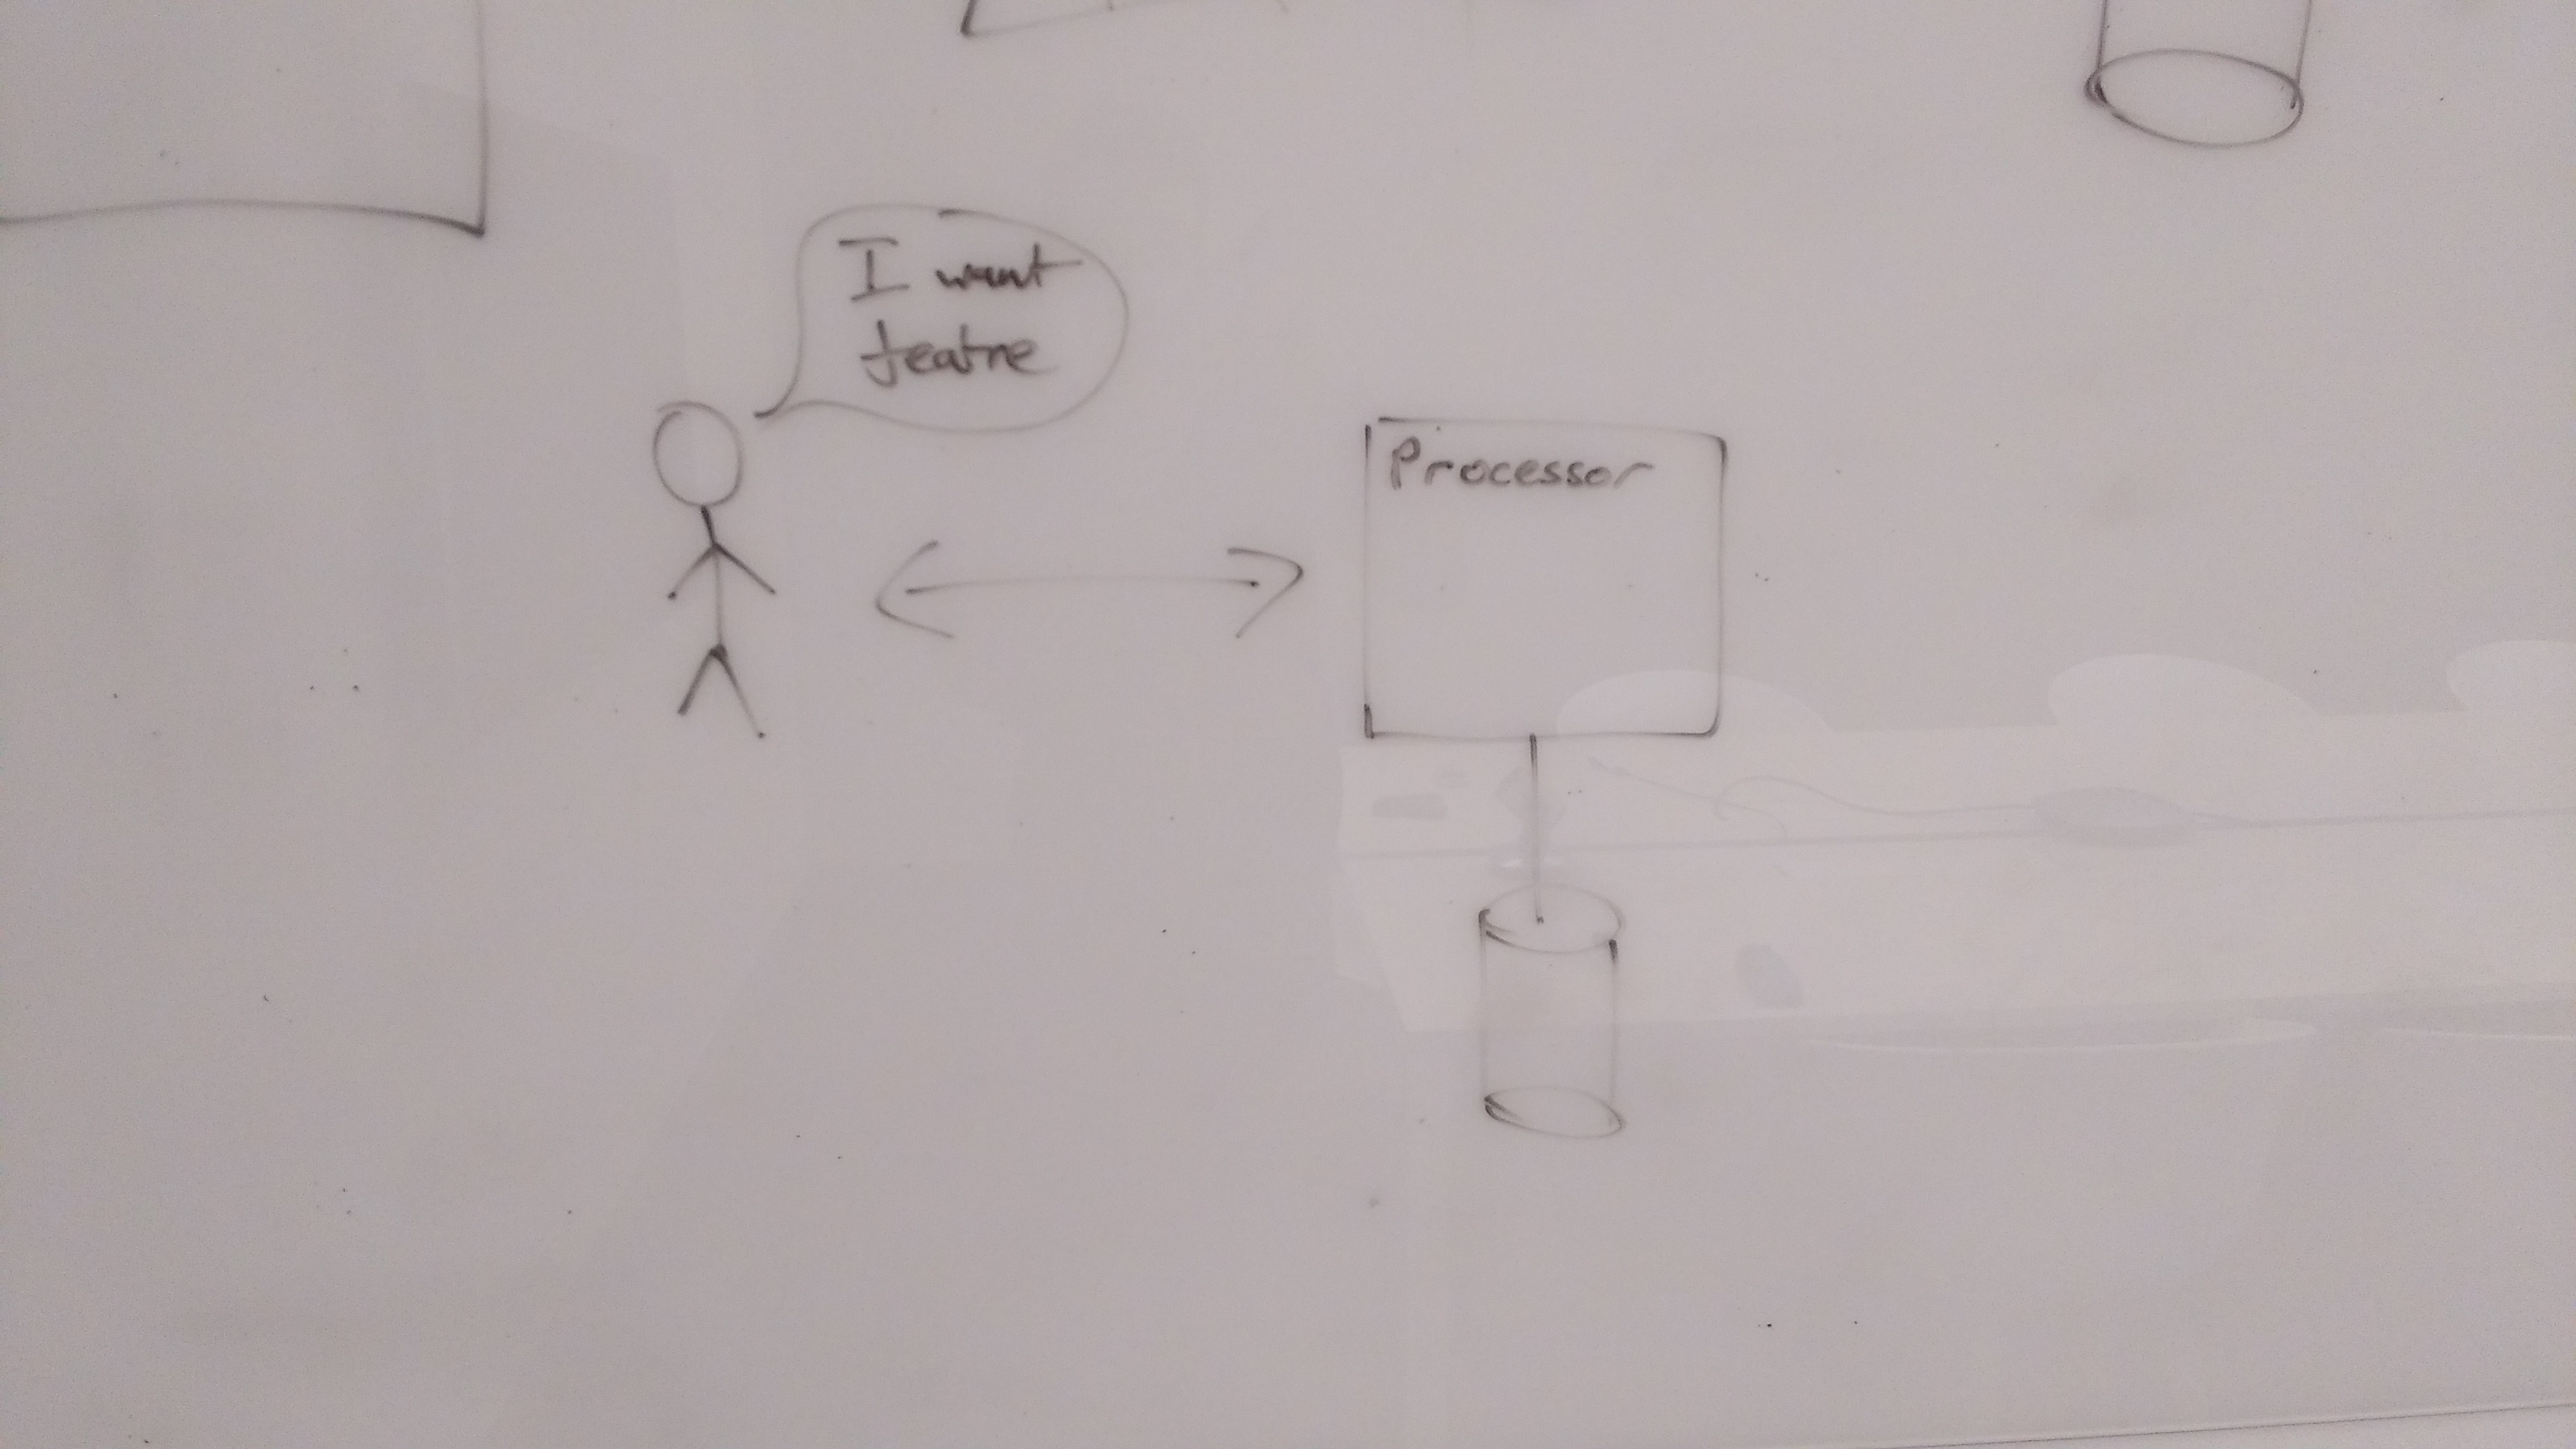 I want
feature
Processor